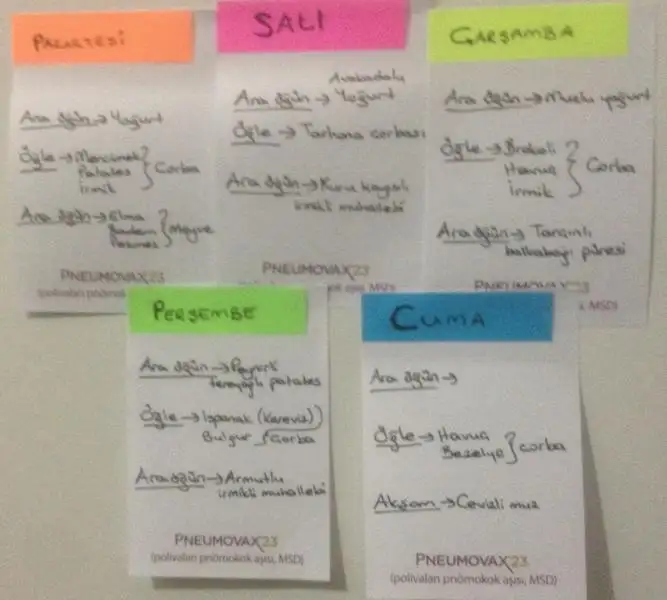 PAZARTESİ
Ara öğün → Yoğurt
Öğle → Mercimek
Patates
irmik
Çorba
Ara öğün → Elma
Badem
Meyve
PNEUMOVAX 23
(polivalan pnömo
SALI
Avokadolu
Ara öğün → Yoğurt
Öğle → Tarhana çorbası
Ara öğün → Kuru kayısılı
irmikli muhallebi
PNEUMOVAX 23
ok aşısı, MSD)
ÇARŞAMBA
Ara öğün → Muzlu yoğurt
Öğle → Brokoli
Havuç
İrmik
Çorba
Ara öğün → Tarçınlı
balkabağı püresi
PNEUMOVAX 23
MSD)
PERŞEMBE
Ara öğün → Peynirli
tereyağlı patates
Öğle → Ispanak (Kereviz)
Bulgur
Çorba
Ara öğün → Armutlu
irmikli muhallebi
PNEUMOVAX 23
(polivalan pnömokok aşısı, MSD)
CUMA
Ara öğün →
Öğle → Havuç
Bezelye
çorba
Akşam → Cevizli muz
PNEUMOVAX 23
(polivalan pnömokok aşısı, MSD)